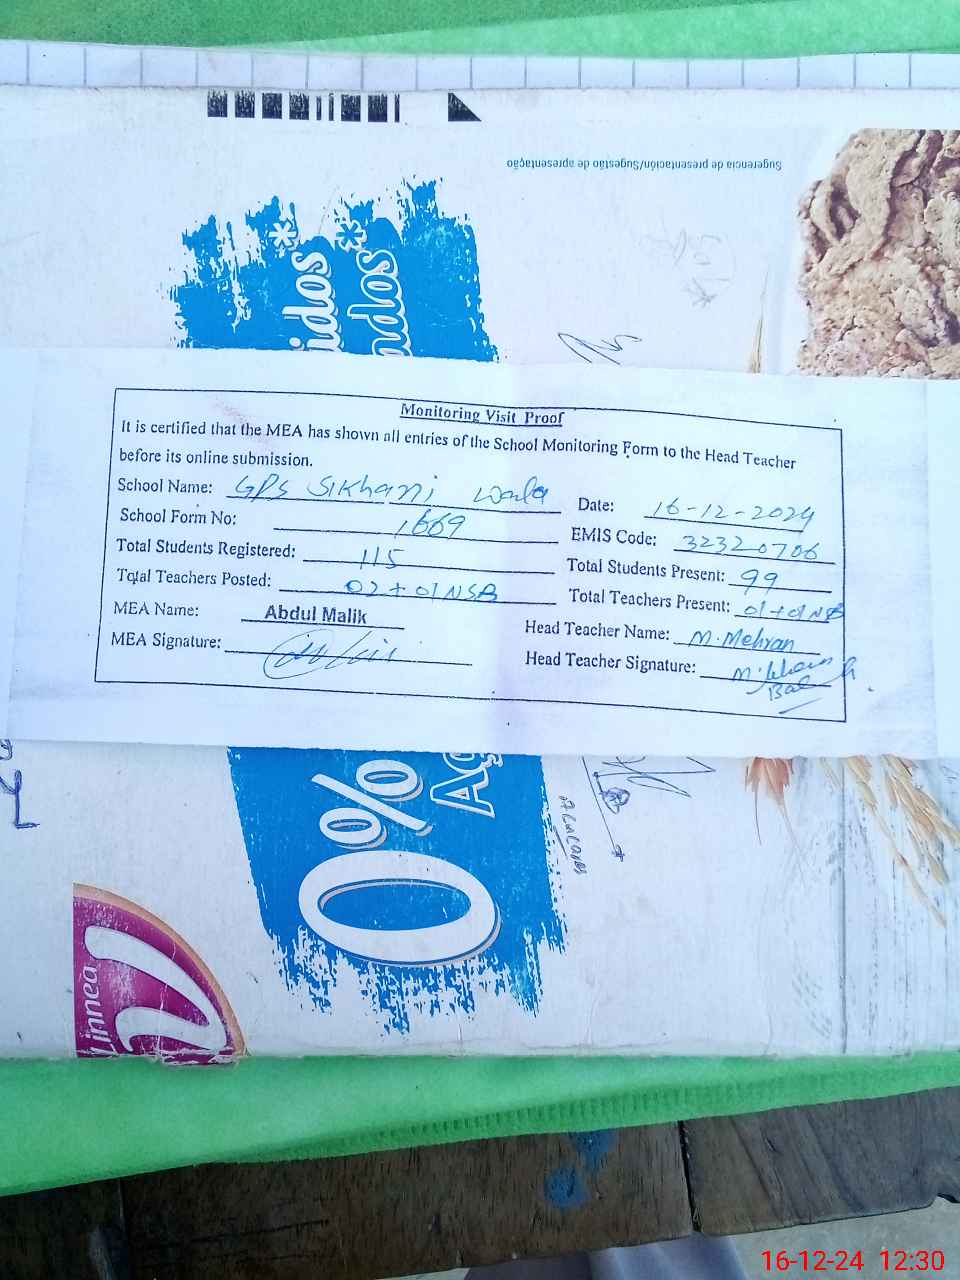 Sugerencia de presentación/Sugestão de apresentação
idos*
ados*
Monitoring Visit Proof
It is certified that the MEA has shown all entries of the School Monitoring Form to the Head Teacher
before its online submission.
School Name: GPS Sikhani wala Date: 16-12-2024
School Form No: 1669 EMIS Code: 32320706
Total Students Registered: 115 Total Students Present: 99
Total Teachers Posted: 02+01NSB Total Teachers Present: 01+01NSB
MEA Name: Abdul Malik Head Teacher Name: M.Mehran
MEA Signature: Head Teacher Signature:
0%
Linnea
16-12-24 12:30